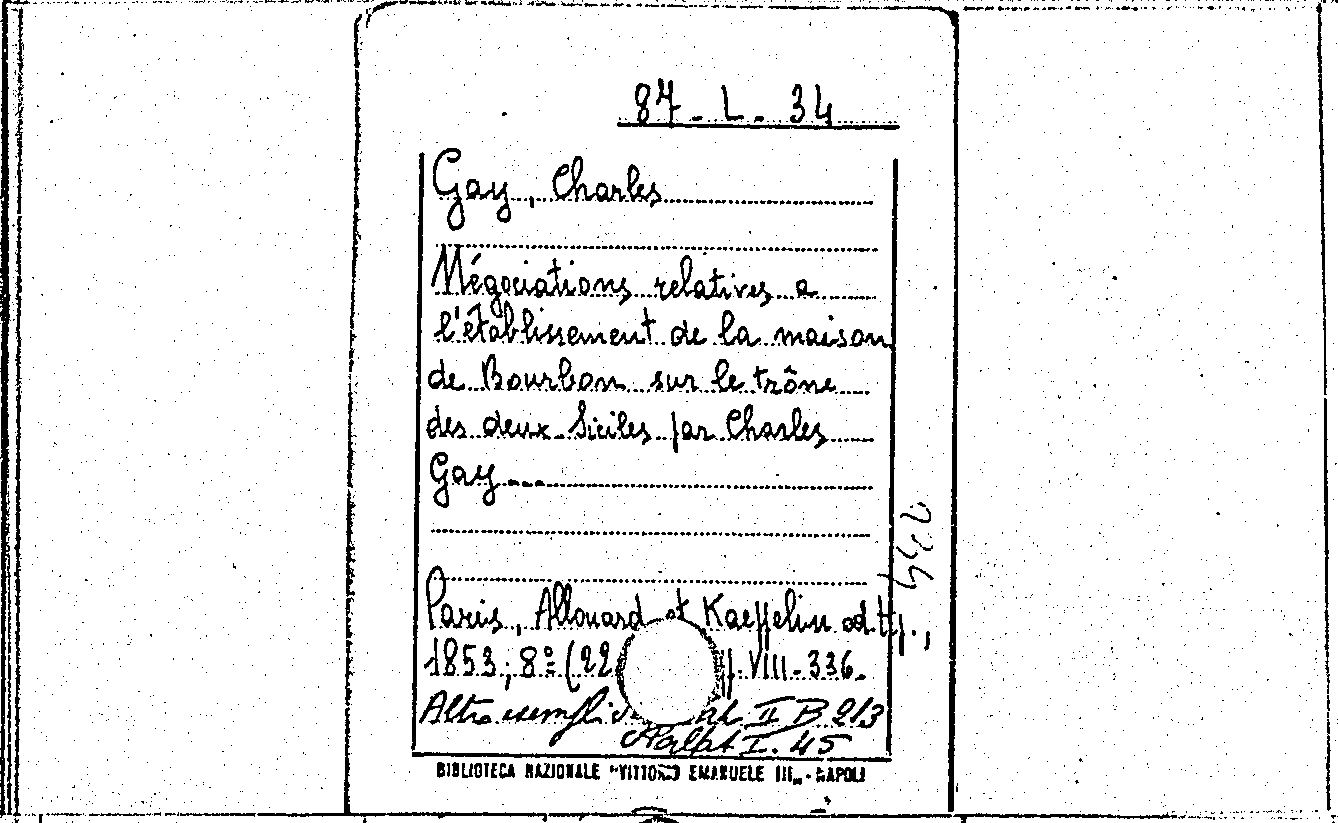 87-L-34
Gay, Charles
Négociations relatives a
l'établissement de la maison
de Bourbon sur le trône
des deux Siciles par Charles
Gay...
Paris, Allouard et Kaeppelin edtt.,
1853; 8º (22 pp. VIII-336.
Altro esempl. II B 213
Malfat I. 45
BIBLIOTECA NAZIONALE "VITTORIO EMANUELE III„ - NAPOLI